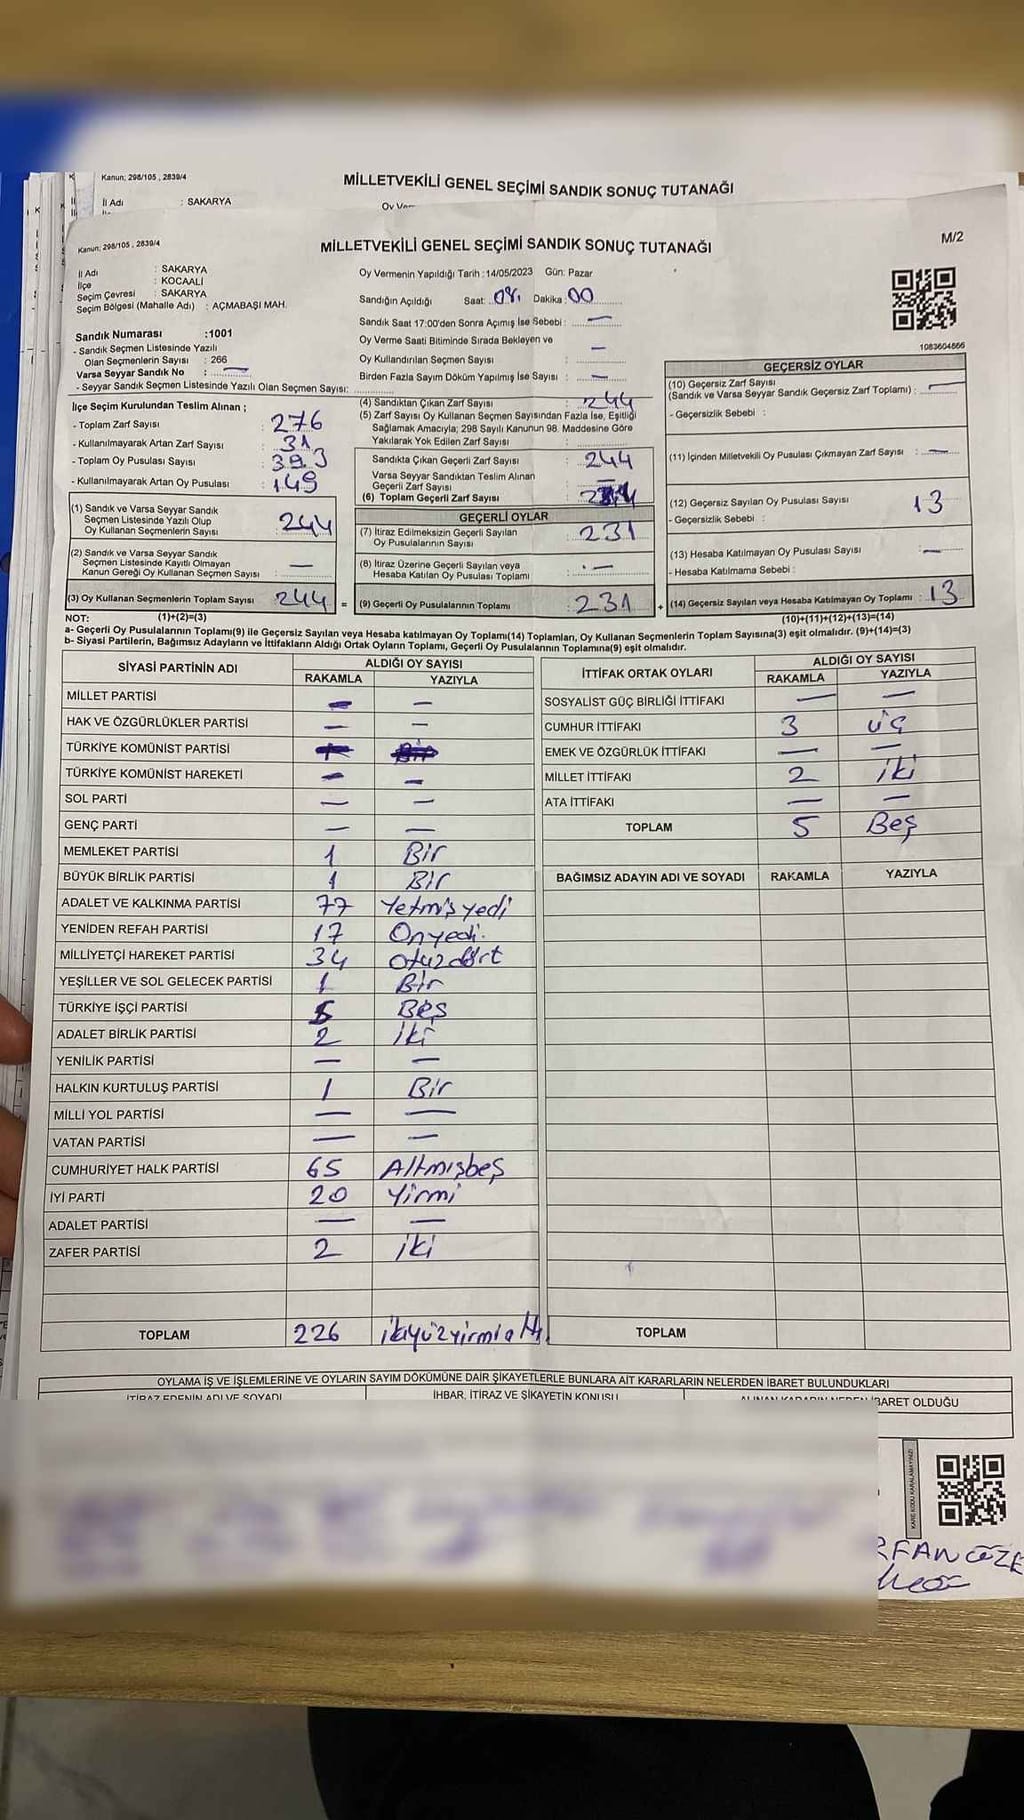 Kanun; 298/105 , 2839/4
MİLLETVEKİLİ GENEL SEÇİMİ SANDIK SONUÇ TUTANAĞI
İl Adı : SAKARYA
Kanun; 298/105 , 2839/4
MİLLETVEKİLİ GENEL SEÇİMİ SANDIK SONUÇ TUTANAĞI
M/2
İl Adı : SAKARYA
İlçe : KOCAALİ
Seçim Çevresi : SAKARYA
Seçim Bölgesi (Mahalle Adı) : AÇMABAŞI MAH.
Sandık Numarası :1001
- Sandık Seçmen Listesinde Yazılı
Olan Seçmenlerin Sayısı : 266
Varsa Seyyar Sandık No : —
- Seyyar Sandık Seçmen Listesinde Yazılı Olan Seçmen Sayısı:
Oy Vermenin Yapıldığı Tarih :14/05/2023 Gün: Pazar
Sandığın Açıldığı Saat: 08. Dakika: 00
Sandık Saat 17:00'den Sonra Açımış İse Sebebi : —
Oy Verme Saati Bitiminde Sırada Bekleyen ve
Oy Kullandırılan Seçmen Sayısı : —
Birden Fazla Sayım Döküm Yapılmış İse Sayısı : —
1083604866
İlçe Seçim Kurulundan Teslim Alınan ;
- Toplam Zarf Sayısı : 276
- Kullanılmayarak Artan Zarf Sayısı : 31
- Toplam Oy Pusulası Sayısı : 393
- Kullanılmayarak Artan Oy Pusulası : 149
(1) Sandık ve Varsa Seyyar Sandık
Seçmen Listesinde Yazılı Olup
Oy Kullanan Seçmenlerin Sayısı : 244
(2) Sandık ve Varsa Seyyar Sandık
Seçmen Listesinde Kayıtlı Olmayan
Kanun Gereği Oy Kullanan Seçmen Sayısı : —
(3) Oy Kullanan Seçmenlerin Toplam Sayısı : 244
(4) Sandıktan Çıkan Zarf Sayısı : 244
(5) Zarf Sayısı Oy Kullanan Seçmen Sayısından Fazla İse, Eşitliği
Sağlamak Amacıyla; 298 Sayılı Kanunun 98. Maddesine Göre
Yakılarak Yok Edilen Zarf Sayısı :
Sandıkta Çıkan Geçerli Zarf Sayısı : 244
Varsa Seyyar Sandıktan Teslim Alınan
Geçerli Zarf Sayısı : —
(6) Toplam Geçerli Zarf Sayısı : 244
GEÇERLİ OYLAR
(7) İtiraz Edilmeksizin Geçerli Sayılan
Oy Pusulalarının Sayısı : 231
(8) İtiraz Üzerine Geçerli Sayılan veya
Hesaba Katılan Oy Pusulası Toplamı : —
= (9) Geçerli Oy Pusulalarının Toplamı : 231
GEÇERSİZ OYLAR
(10) Geçersiz Zarf Sayısı
(Sandık ve Varsa Seyyar Sandık Geçersiz Zarf Toplamı) : —
- Geçersizlik Sebebi :
(11) İçinden Milletvekili Oy Pusulası Çıkmayan Zarf Sayısı : —
(12) Geçersiz Sayılan Oy Pusulası Sayısı : 13
- Geçersizlik Sebebi :
(13) Hesaba Katılmayan Oy Pusulası Sayısı : —
- Hesaba Katılmama Sebebi :
+ (14) Geçersiz Sayılan veya Hesaba Katılmayan Oy Toplamı : 13
NOT: (1)+(2)=(3) (10)+(11)+(12)+(13)=(14)
a- Geçerli Oy Pusulalarının Toplamı(9) ile Geçersiz Sayılan veya Hesaba katılmayan Oy Toplamı(14) Toplamları, Oy Kullanan Seçmenlerin Toplam Sayısına(3) eşit olmalıdır. (9)+(14)=(3)
b- Siyasi Partilerin, Bağımsız Adayların ve İttifakların Aldığı Ortak Oyların Toplamı, Geçerli Oy Pusulalarının Toplamına(9) eşit olmalıdır.
SİYASİ PARTİNİN ADI ALDIĞI OY SAYISI
RAKAMLA YAZIYLA
MİLLET PARTİSİ — —
HAK VE ÖZGÜRLÜKLER PARTİSİ — —
TÜRKİYE KOMÜNİST PARTİSİ
TÜRKİYE KOMÜNİST HAREKETİ — —
SOL PARTİ — —
GENÇ PARTİ — —
MEMLEKET PARTİSİ 1 Bir
BÜYÜK BİRLİK PARTİSİ 1 Bir
ADALET VE KALKINMA PARTİSİ 77 Yetmişyedi
YENİDEN REFAH PARTİSİ 17 Onyedi.
MİLLİYETÇİ HAREKET PARTİSİ 34 otuzdört
YEŞİLLER VE SOL GELECEK PARTİSİ 1 Bir
TÜRKİYE İŞÇİ PARTİSİ 5 Beş
ADALET BİRLİK PARTİSİ 2 iki
YENİLİK PARTİSİ — —
HALKIN KURTULUŞ PARTİSİ 1 Bir
MİLLİ YOL PARTİSİ — —
VATAN PARTİSİ — —
CUMHURİYET HALK PARTİSİ 65 Altmışbeş
İYİ PARTİ 20 Yirmi
ADALET PARTİSİ — —
ZAFER PARTİSİ 2 iki
TOPLAM 226 ikiyüzyirmialtı.
İTTİFAK ORTAK OYLARI ALDIĞI OY SAYISI
RAKAMLA YAZIYLA
SOSYALİST GÜÇ BİRLİĞİ İTTİFAKI — —
CUMHUR İTTİFAKI 3 üç
EMEK VE ÖZGÜRLÜK İTTİFAKI — —
MİLLET İTTİFAKI 2 iki
ATA İTTİFAKI — —
TOPLAM 5 Beş
BAĞIMSIZ ADAYIN ADI VE SOYADI RAKAMLA YAZIYLA
TOPLAM
OYLAMA İŞ VE İŞLEMLERİNE VE OYLARIN SAYIM DÖKÜMÜNE DAİR ŞİKAYETLERLE BUNLARA AİT KARARLARIN NELERDEN İBARET BULUNDUKLARI
İTİRAZ EDENİN ADI VE SOYADI İHBAR, İTİRAZ VE ŞİKAYETİN KONUSU ALINAN KARARIN NEDEN İBARET OLDUĞU
KARE KODU KARALAMAYINIZ!